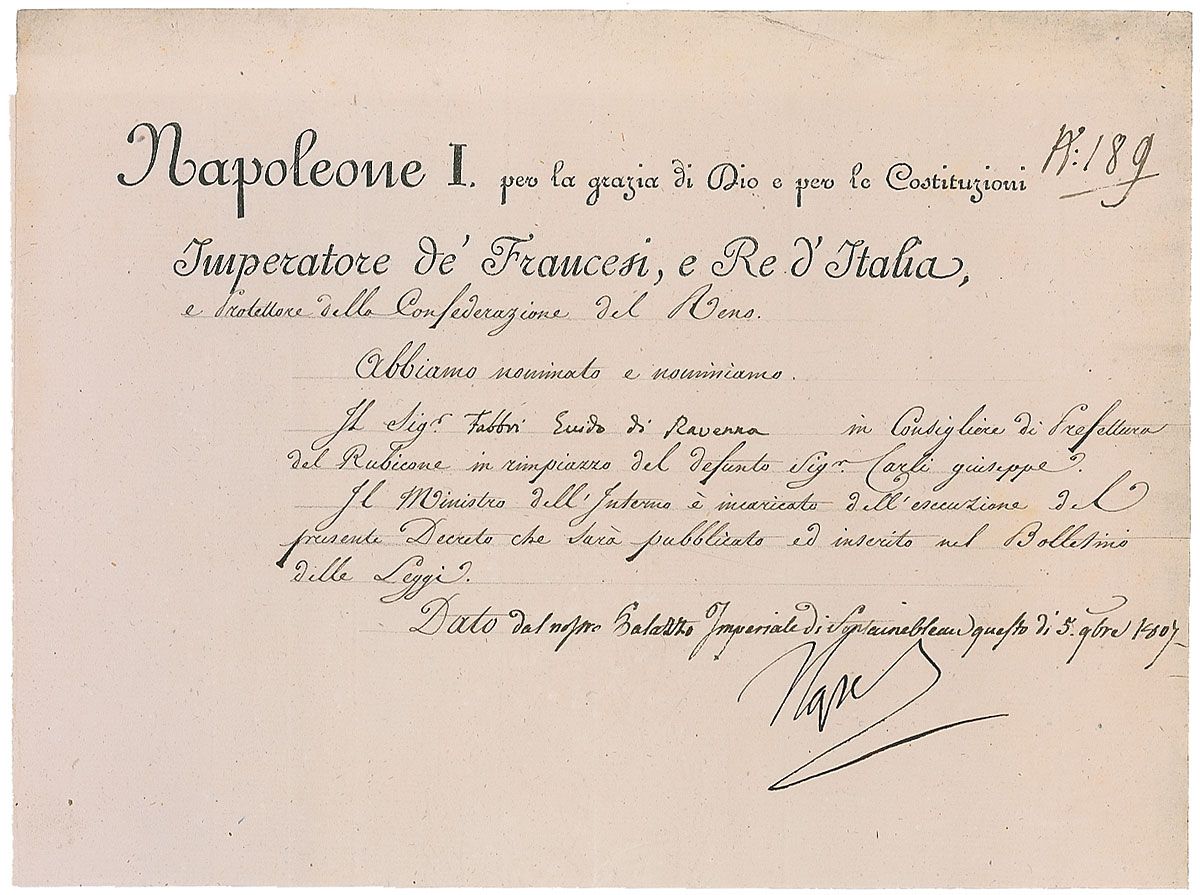 Napoleone I. per la grazia di Dio e per le Costituzioni Nº: 189
Imperatore de' Francesi, e Re d'Italia,
e Protettore della Confederazione del Reno.
Abbiamo nominato e nominiamo.
Il Sigr. Fabbri Guido di Ravenna in Consigliere di Prefettura
del Rubicone in rimpiazzo del defunto Sigr. Carli giuseppe.
Il Ministro dell'Interno è incaricato dell'esecuzione del
presente Decreto che sarà pubblicato ed inserito nel Bolletino
delle Leggi.
Dato dal nostro Palazzo Imperiale di Fontainebleau questo dì 5. 9bre 1807
Nap